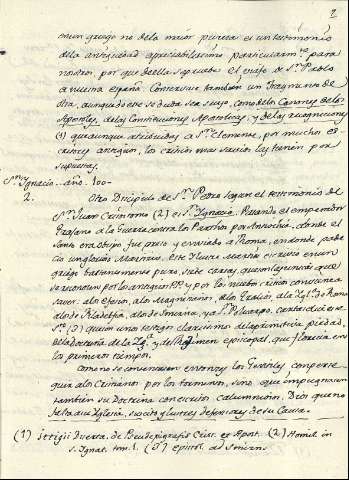 2
mun griego no dela maior pureza es un testimonio
dela antiguedad apreciabilissimo, particularmte para
nosotros, por que de ella se prueba el viage de Sn Pablo
a nuestra España. Conservase tambien un Fragmento de
otra, aunque dicese de duda ser suyo, como delos Canones de los
Apostoles, delas Constituciones Apostolicas, y delas recogniciones
(1) que aunque atribuidas a Sn Clemente, por muchos es-
critores antiguos, los criticos mas savios las tienen por
supuestas.
Sn Ignacio. año. 100-
2. Otro Discipulo de Sn Pedro segun el testimonio de
Sn Juan Crisostomo (2) es Sn Ignacio. Pasando el emperador
Trajano a la Guerra contra los Parthos por Antiochia, donde el
Santo era obispo fue preso y enviado a Roma, en donde pade-
cio un glorioso Martirio. Este Ilustre Martir escrivio en un
griego bastantemente puro, siete cartas, que son las unicas que
se reconocen por los antiguos PP. y por los mushos criticos
alos Efesios, alos Magnesianos, alos Tralios, ala Yglª de Roma
alos de Filadelfia, alos de Smirna, y a Sn Policarpo.
Sto (3) quien unos testigos clarisimos dela primitiva piedad,
dela doctrina dela Yglª y del Regimen episcopal, que florecia en
los primeros tiempos.
Como no se contentavan entonces los Gentiles con perse-
guir alos Cristianos por los tormentos, sino, que impugnavan
tambien su Doctrina con escritos calumniosos. Dios que no
falta a su Yglesia, suscito ilustres defensores de su Causa.
(1) Ittigii Disserta. de Pseudepigrafis Christ. et Apost. (2) Homil. in
S. Ignat. tom. 1. (3) epistol. ad Smirn.